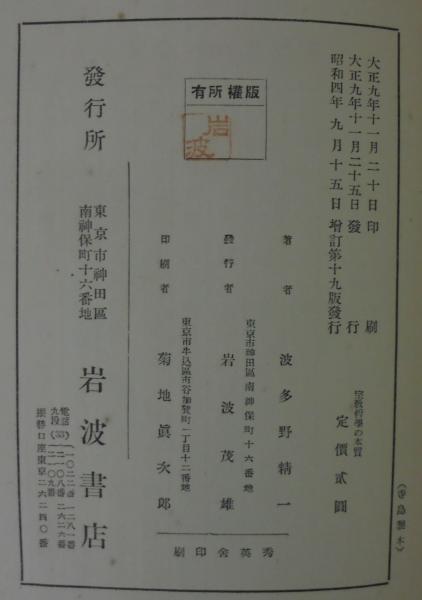 大正九年十一月二十日印刷
大正九年十一月二十五日發行
昭和四年九月十五日增訂第十九版發行
宗教哲學の本質
定價貳圓
(寺島製本)
版權所有
岩波
著者 波多野精一
東京市神田區南神保町十六番地
發行者 岩波茂雄
東京市牛込區市谷加賀町一丁目十二番地
印刷者 菊地眞次郎
秀英舍印刷
發行所
東京市神田區
南神保町十六番地
岩波書店
電話
九段(33)
振替口座東京二六二四〇番